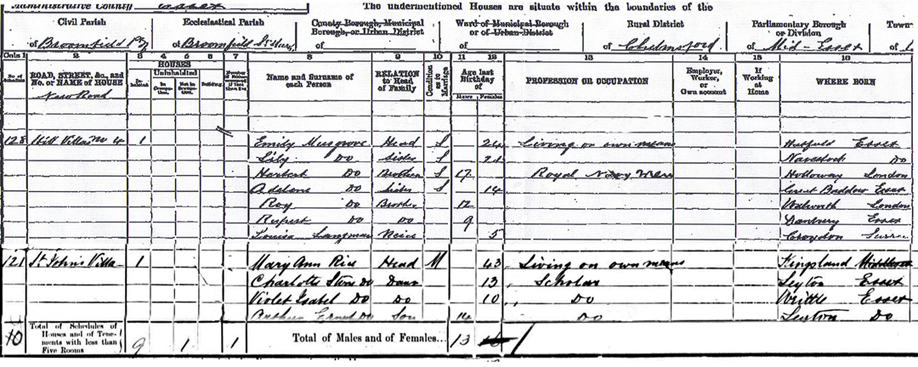 Administrative County Essex The undermentioned Houses are situate within the boundaries of the
Civil Parish Ecclesiastical Parish County Borough, Municipal Borough, or Urban District Ward of Municipal Borough or of Urban District Rural District Parliamentary Borough or Division Town
of Broomfield of Broomfield St Mary of of of Chelmsford of Mid-Essex of
Cols 1 2 3 4 5 6 7 8 9 10 11 12 13 14 15 16
No. of Schedule ROAD, STREET, &c., and No. or NAME of HOUSE HOUSES Inhabited Uninhabited In Occupation Not in Occupation Building Number of Name and Surname of each Person RELATION to Head of Family Condition as to Marriage Age last Birthday of Males Females PROFESSION OR OCCUPATION Employer, Worker, or Own account If Working at Home WHERE BORN
New Road
128 Hill Villas No 4 1 Emily Musgrove Head S 24 Living on own means Hatfield Essex
Lily Do Sister S 21 Navestock Do
Herbert Do Brother S 17 Royal Navy Holloway London
Do Sister S 14 Great Baddow Essex
Roy Do Brother 12 Walworth London
Rupert Do Do 9 Danbury Essex
Louisa Neice 5 Croydon Surrey
121 St Johns Villa 1 Mary Ann Rice Head M 43 Living on own means Kingsland Middlesex
Charlotte Do Daur 13 Scholar Leyton Essex
Violet Isabel Do Do 10 Do Writtle Essex
Ernest Do Son 14 Do Leyton Do
10 Total of Schedules of Houses and of Tenements with less than Five Rooms 9 1 1 Total of Males and of Females... 13